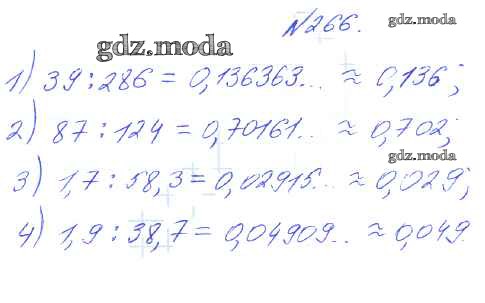 №266.
gdz.moda
gdz.moda
1) 39 : 286 = 0,136363... ≈ 0,136;
2) 87 : 124 = 0,70161.. ≈ 0,702;
gdz.moda
3) 1,7 : 58,3 = 0,02915.. ≈ 0,029;
4) 1,9 : 38,7 = 0,04909.. ≈ 0,049.